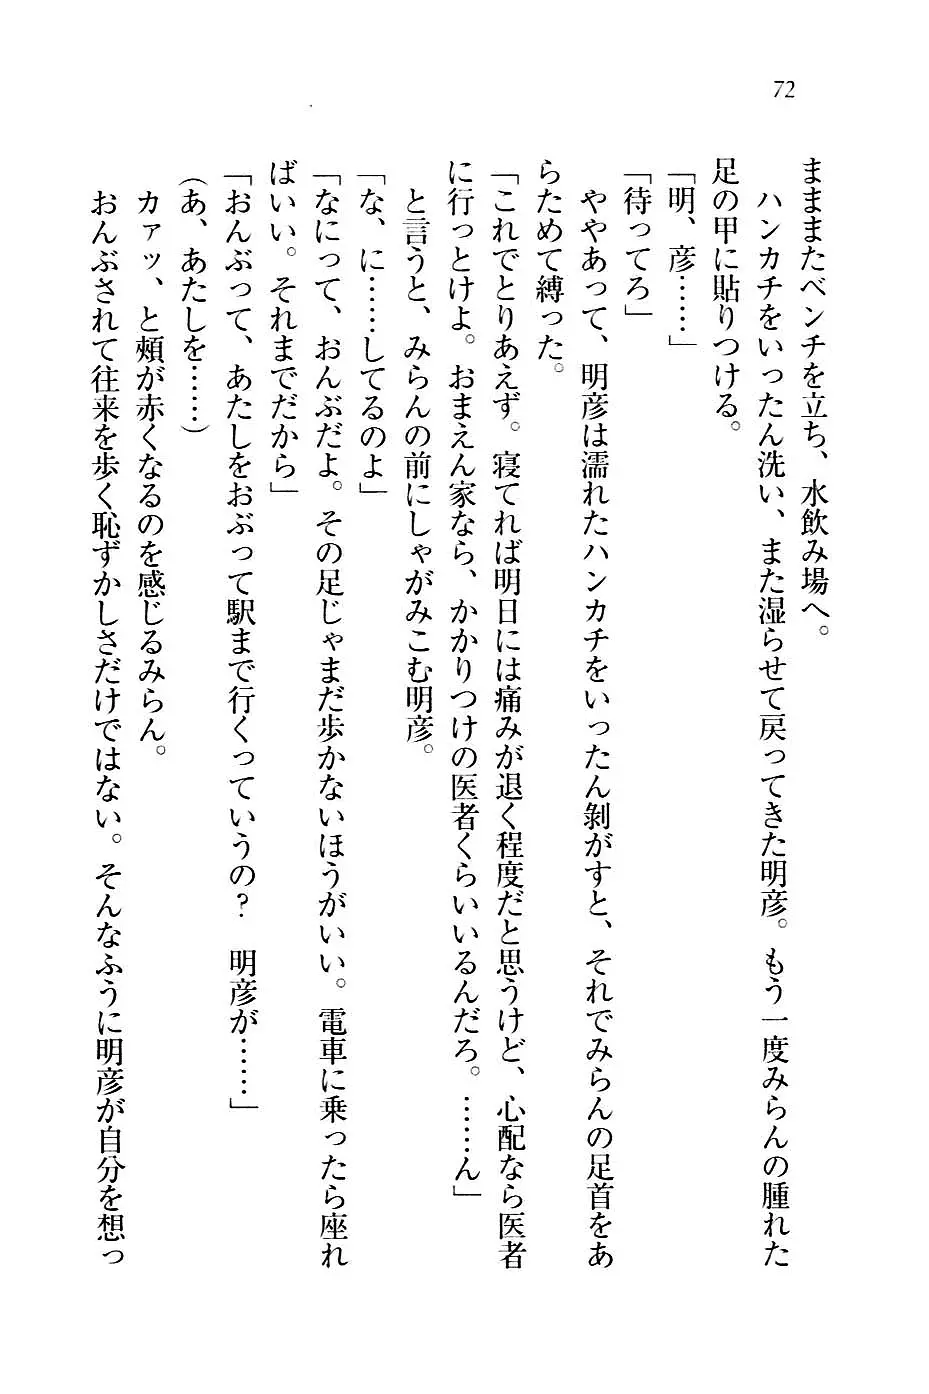 72
まままたベンチを立ち、水飲み場へ。
　ハンカチをいったん洗い、また湿らせて戻ってきた明彦。もう一度みらんの腫れた
足の甲に貼りつける。
「明、彦……」
「待ってろ」
　ややあって、明彦は濡れたハンカチをいったん剝がすと、それでみらんの足首をあ
らためて縛った。
「これでとりあえず。寝てれば明日には痛みが退く程度だと思うけど、心配なら医者
に行っとけよ。おまえん家なら、かかりつけの医者くらいいるんだろ。……ん」
　と言うと、みらんの前にしゃがみこむ明彦。
「な、に……してるのよ」
「なにって、おんぶだよ。その足じゃまだ歩かないほうがいい。電車に乗ったら座れ
ばいい。それまでだから」
「おんぶって、あたしをおぶって駅まで行くっていうの？　明彦が……」
（あ、あたしを……）
　カァッ、と頰が赤くなるのを感じるみらん。
　おんぶされて往来を歩く恥ずかしさだけではない。そんなふうに明彦が自分を想っ